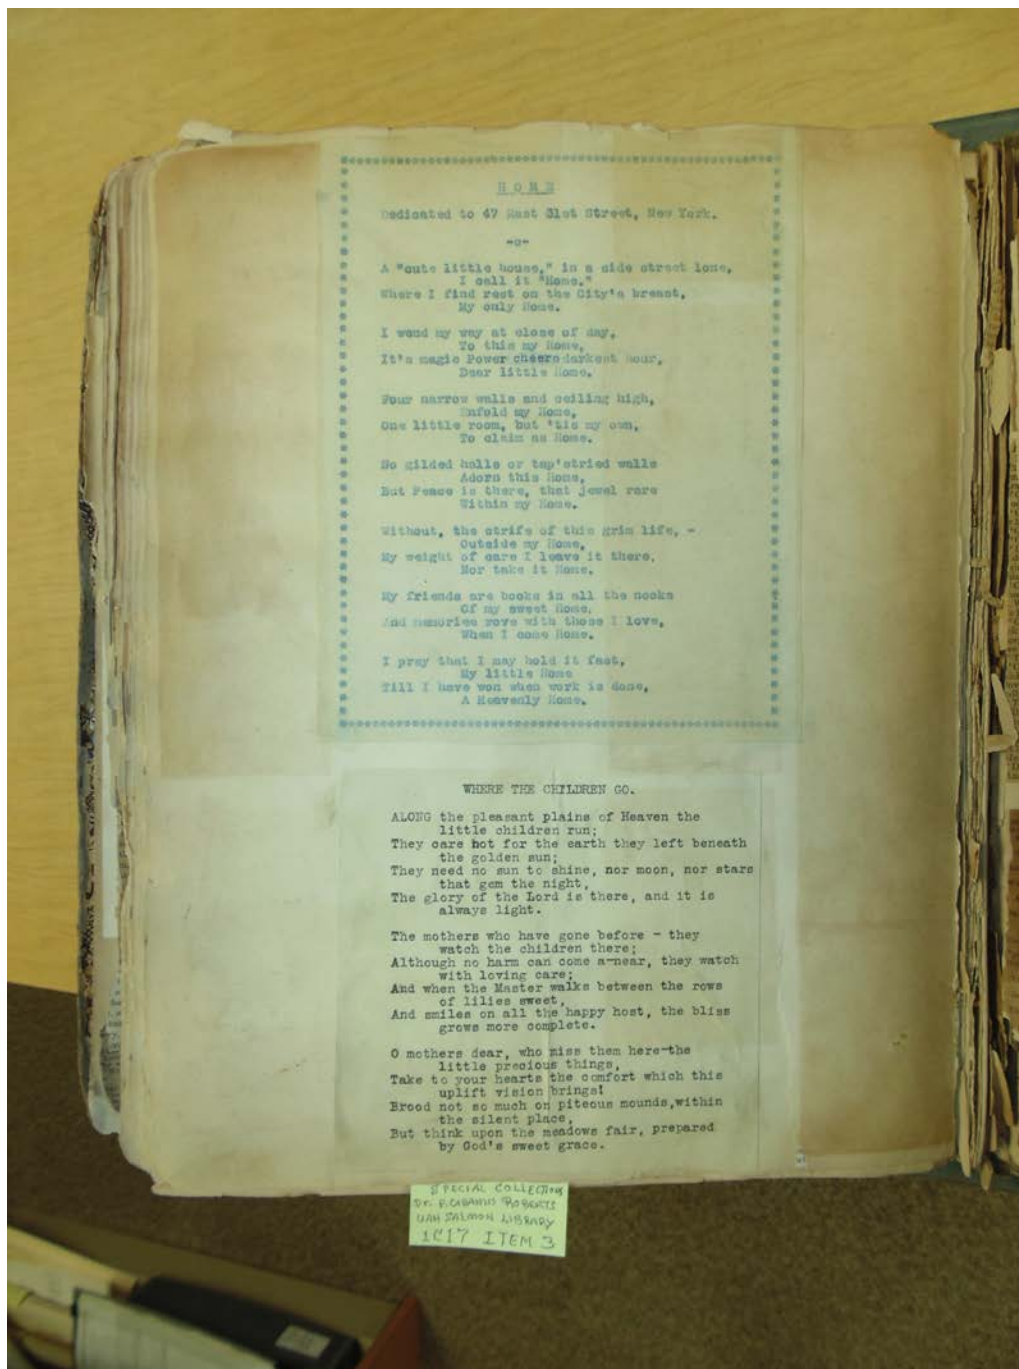 HOME
Dedicated to 47 East 31st Street, New York.
-o-
A "cute little house," in a side street lone,
I call it "Home."
Where I find rest on the City's breast,
My only Home.
I wend my way at close of day,
To this my Home,
It's magic Power cheers darkest hour,
Dear little Home.
Four narrow walls and ceiling high,
Enfold my Home,
One little room, but 'tis my own,
To claim as Home.
No gilded halls or tap'stried walls
Adorn this Home,
But Peace is there, that jewel rare
Within my Home.
Without, the strife of this grim life, -
Outside my Home,
My weight of care I leave it there,
Nor take it Home.
My friends are books in all the nooks
Of my sweet Home,
And memories rove with those I love,
When I come Home.
I pray that I may hold it fast,
My little Home
Till I have won when work is done,
A Heavenly Home.
WHERE THE CHILDREN GO.
ALONG the pleasant plains of Heaven the
little children run;
They care not for the earth they left beneath
the golden sun;
They need no sun to shine, nor moon, nor stars
that gem the night,
The glory of the Lord is there, and it is
always light.
The mothers who have gone before - they
watch the children there;
Although no harm can come a-near, they watch
with loving care;
And when the Master walks between the rows
of lilies sweet,
And smiles on all the happy host, the bliss
grows more complete.
O mothers dear, who miss them here-the
little precious things,
Take to your hearts the comfort which this
uplift vision brings!
Brood not so much on piteous mounds,within
the silent place,
But think upon the meadows fair, prepared
by God's sweet grace.
SPECIAL COLLECTIONS
Dr. ROBERTS
UAH SALMON LIBRARY
1C17 ITEM 3